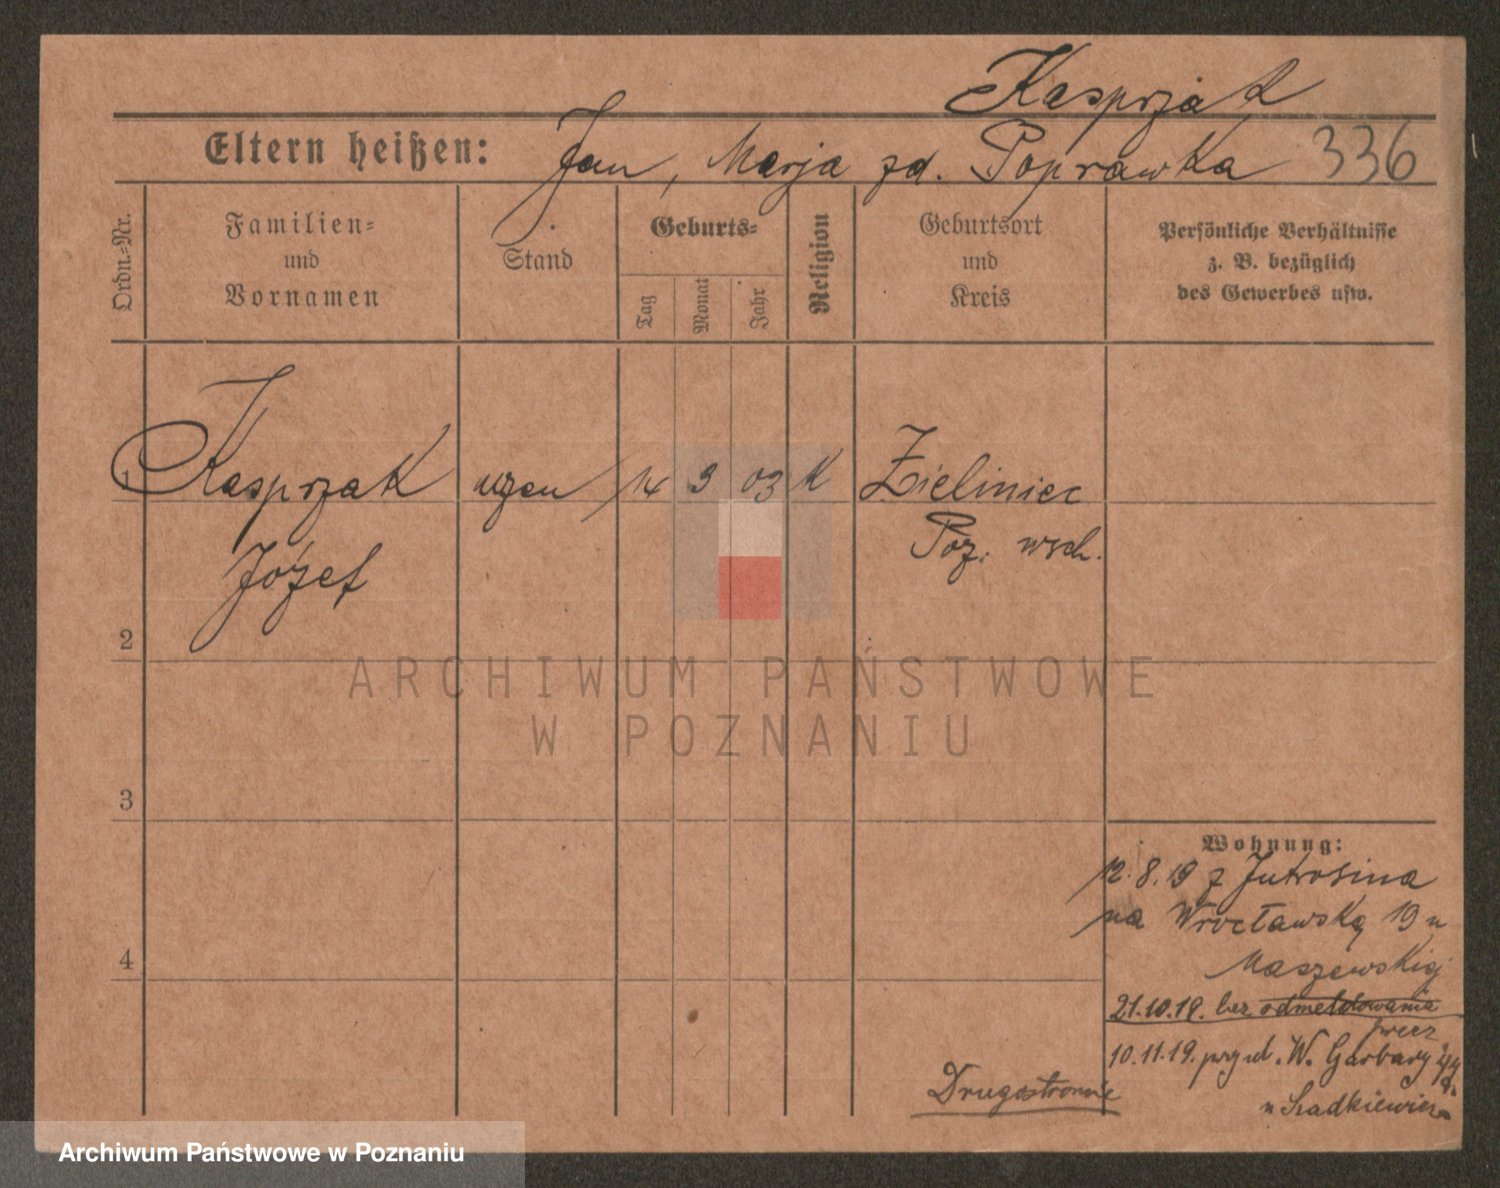 Kasprzak
Eltern heißen: Jan, Marja zd. Poprawka 336
Ordn.-Nr.
Familien-
und
Vornamen
Stand
Geburts-
Tag
Monat
Jahr
Religion
Geburtsort
und
Kreis
Persönliche Verhältnisse
z. B. bezüglich
des Gewerbes usw.
1 Kasprzak uczeń 14 3 03 K Zieliniec
Józef Poz. wsch.
2
3
4
ARCHIWUM PAŃSTWOWE
W POZNANIU
Wohnung:
12.8.19 z Jutrosina
na Wrocławską 19 u
Maszewskiej
21.10.19. bez odmeldowania
precz
10.11.19. W. Garbary
u Szadkiewicza
Drugostronnie
Archiwum Państwowe w Poznaniu